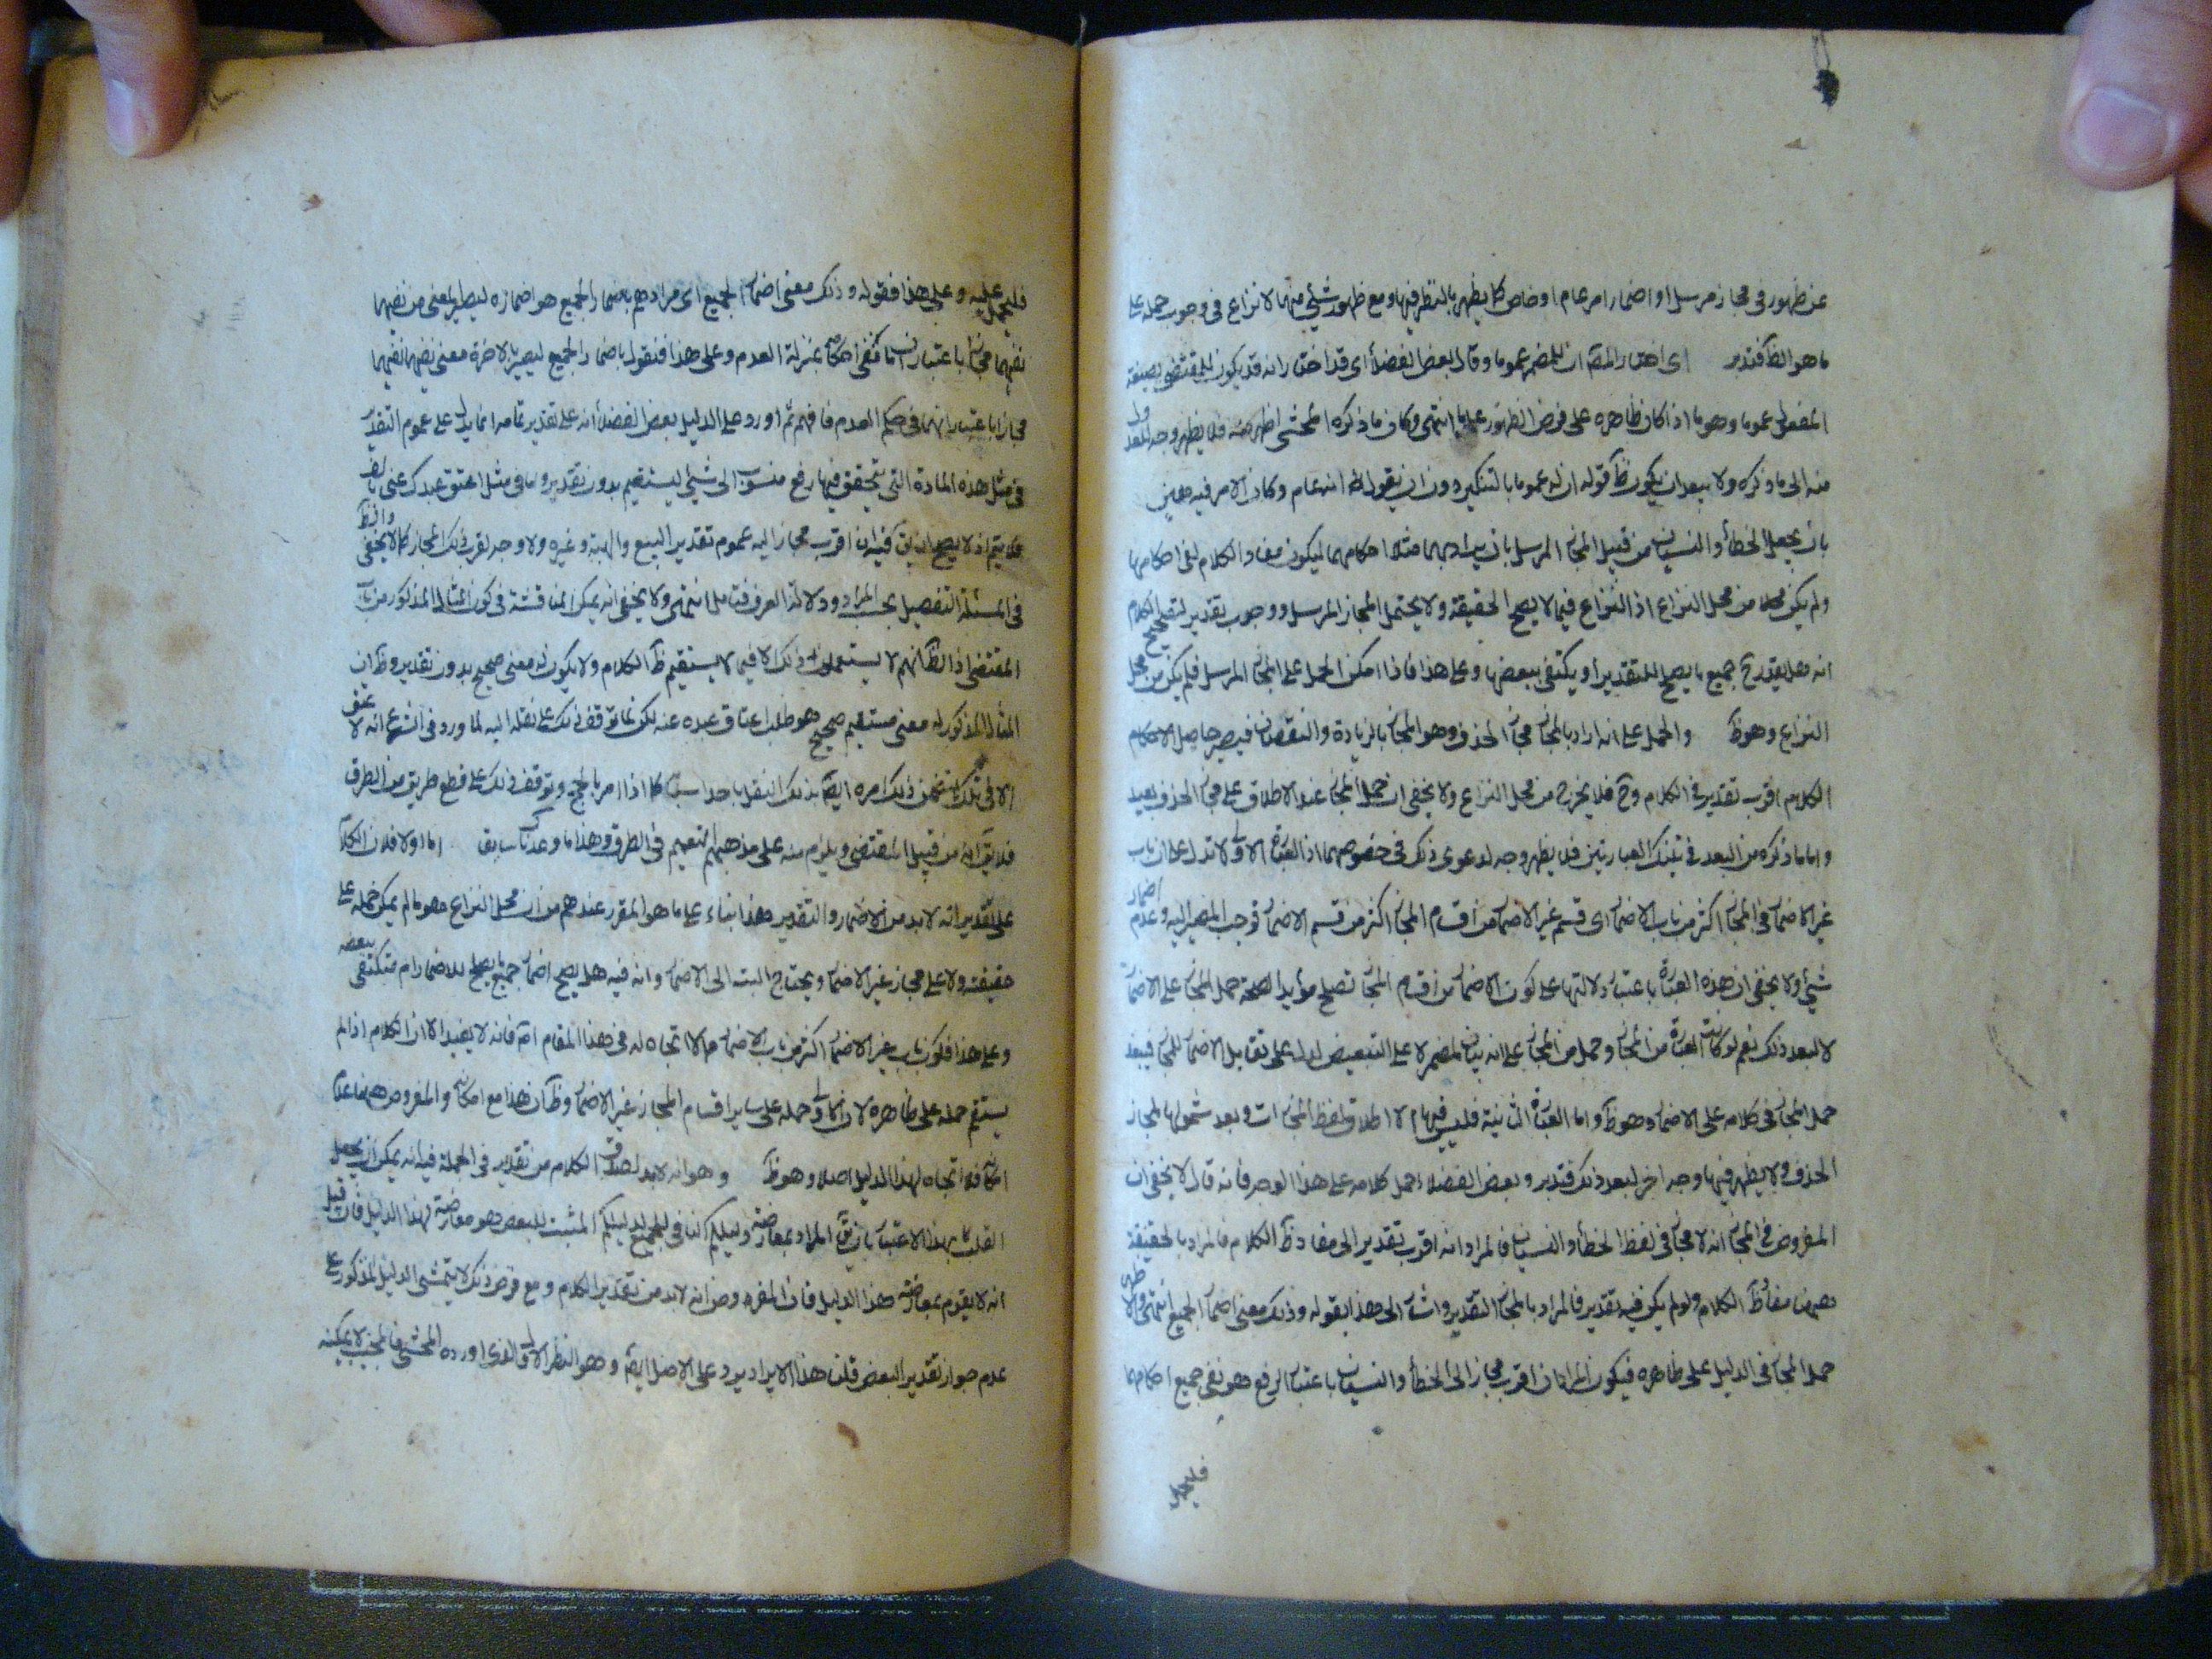 عن ظهور في مجاز مرسل او اضمار امر عام او خاص كما يظهر بالنظر فيها ومع ظهور شيء منهما لا نزاع في وجوب حمله على
ما هو الظ فتدبر اى اختار المص ان للمضمر عموما وقال بعض الفضلأ اى قد اختار انه قد يكون للمقتضى بصيغة
المفعول عموما وهو ما اذا كان ظاهره على فرض انتهى وكان ما ذكره المحشى اظهر منه فلا يظهر وجه
منه الى ما ذكره ولا يبعد ان يكون قوله ان له عموما بالتنكير دون ان يقول انه عام وكان الامر فيه هين
بان يجعل الخطأ والنسيان من قبيل المجاز المرسل بان يراد بهما مثلا احكامهما ليكون مفاد الكلام نفى احكامها
ولم يكن محلا من محل النزاع اذ النزاع فيما لا يصح الحقيقة ولا يحتمل المجاز المرسل ووجوب تقدير لتصحيح الكلام
انه هل يقدر ح جميع ما يصح للتقدير او يكتفى ببعضها وعلى هذا فاذا امكن الحمل على المجاز المرسل فلم يكن من محل
النزاع وهو ظ والحمل على انه اراد بالمجاز مجاز الحذف وهو المجاز بالزيادة والنقصان فيصير حاصل الكلام
الكلام اقرب تقدير في الكلام وح فلا يخرج من محل النزاع ولا يخفى ان حمل المجاز عند الاطلاق على مجاز الحذف بعيد
واما ما ذكره من البعد في تينك العبارتين فلا يظهر وجه لدعوى ذلك في خصوصهما اذ العبارة الاولى لا تدل على ان باب
غير الاضمار في المجاز اكثر من باب الاضمار اى قسم غير الاضمار من اقسام المجاز اكثر من قسم الاضمار فوجب المصير اليه وعدم اضمار
شيء ولا يخفى ان هذه العبارة باعتبار دلالتها على كون الاضمار من اقسام المجاز تصلح مؤيدا لصحة حمل المجاز على الاضمار
لا لبعد ذلك نعم لو كانت العبارة من المجاز وحمل من المجاز على انه بيان للمضمر لا على التبعيض لدل على تقابل الاضمار للمجاز فيبعد
حمل المجاز في كلامه على الاضمار وهو ظ واما العبارة الثانية فليس فيها الا اطلاق لفظ المجازات وبعد شمولها لمجاز
الحذف ولا يظهر فيها وجه اخر لبعد ذلك فتدبر وبعض الفضلاء حمل كلامه على هذا الوجه فانه قال لا يخفى ان
المفروض في المجاز انه لا مجاز في لفظ الخطأ والنسيان فالمراد انه اقرب تقدير الى مفاد ظ الكلام فالمراد بالحقيقة
ههنا مفاد ظ الكلام ولو لم يكن فيه تقدير فالمراد بالمجاز التقدير واشار الى هذا بقوله وذلك معنى اضمار الجميع انتهى
حمل المجاز في الدليل على ظاهره فيكون المراد ان اقرب مجاز الى الخطأ والنسيان باعتبار الرفع هو نفى جميع احكامها
فليحمل
فليحمل عليه وعلى هذا فقوله وذلك معنى اضمار الجميع اى مرادهم باضمار الجميع هو اضماره ليصير المعنى من نفيهما
نفيهما مجازا باعتبار ان ما نفى احكامه بمنزلة العدم وعلى هذا فنقول باضمار الجميع ليصير بالاخرة معنى نفيهما نفيهما
مجازا باعتبار انهما في حكم العدم فافهم ثم اورد على الدليل بعض الفضلأ انه على تقدير تمامه انما يدل على عموم التقدير
في مثل هذه المادة التى يتحقق فيها رفع منسوب الى شيء ليستقيم بدون تقدير واما في مثل اعتق عبدك عنى بالف
فلا يتم اذ لا يصح ان يق ان اقرب مجاز اليه عموم تقدير البيع والهبة وغيره ولا وجه لقرب ذلك المجاز كما لا يخفى والظ
في المسئلة التفصيل بحسب المواد ودلالة العرف فتامل انتهى ولا يخفى انه يمكن المناقشة في كون المثال المذكور من باب
المقتضى اذ الظ انهم لا يستعملون ذلك الا فيما لا يستقيم ظ الكلام ولا يكون له معنى صحيح بدون تقدير وظ ان
المثال المذكور له معنى مستقيم صحيح وهو طلب اعتاق عبده عنه لكن لما توقف ذلك على نقله اليه لما ورد في الشرع انه لا عتق
الا في ملك تضمن ذلك امره ايض بذلك النقل باحد اسبابه كما اذا امر بالحج وتوقف ذلك على قطع طريق من الطرق
فلا يق انه من قبيل المقتضى ويلزم منه على مذهبهم التعميم في الطرق وهذا ما وعدناك سابق اما اولا فلان الكلام
على تقدير انه لا بد من الاضمار والتقدير وهذا بناء على ما هو المقرر عندهم من ان محل النزاع هو ما لم يمكن حمله على
حقيقته ولا على مجاز غير الاضمار ويحتاج البته الى الاضمار وانه فيه هل يصح اضمار جميع ما يصلح للاضمار ام يكتفى ببعضه
وعلى هذا فكون باب غير الاضمار اكثر من باب الاضمار مما لا اتجاه له في هذا المقام اص فانه لا يفيد الا ان الكلام اذا لم
يستقم حمله على ظاهره لا وحمله على ساير اقسام المجاز غير الاضمار وظ ان هذا مع امكانه والمفروض ههنا عدم
امكانه فلا اتجاه لهذا الدليل اصلا وهو ظ وهو انه لا بد لصدق الكلام من تقدير في الجملة فيه انه يمكن ان يجعل
القلب بهذا الاعتبار بان يق المراد بمعارضته دليلكم النافى للجميع لدليلكم المثبت للبعض وهو معارضته لهذا الدليل فان قيل
انه لا يقوم بمعارضة هذا الدليل فان المفروض انه لا بد من تقدير الكلام ومع فرض ذلك لا يتمشى الدليل المذكور على
عدم جواز تقدير البعض قلت هذا الايراد يرد على الاصل ايض وهو النظر الاول الذى اورده المحشى فالمجيب لا يمكنه